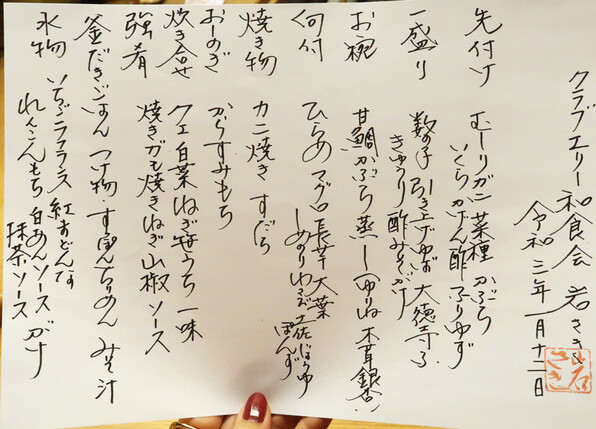 クラブエリー和食会 岩さき
令和三年一月十二日
先付け むしりガニ 菜種 かぶら
いくら かけん酢 ふりゆず
一盛り 数の子 引き上げゆば 大徳寺ふ
きゅうり 酢みそがけ
お椀 甘鯛かぶら蒸し ゆりね 木耳 銀杏
向付 ひらめ マグロ 長芋 大葉
しめり わさび 土佐じょうゆ
ぽんず
焼き物 カニ焼き すだち
おしのぎ からすみもち
炊き合せ クエ 白菜 ねぎ 一味
強肴 焼きガモ 焼きねぎ 山椒ソース
釜だきごはん つけ物・すぽんちりめん みそ汁
水物 いちご ラフランス 紅まどんな
れんこんもち 白あんソースがけ
抹茶ソース
岩さき